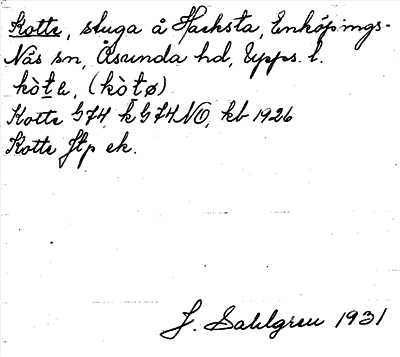 Kotte, stuga å Hacksta, Enköpings-
Näs sn, Åsunda hd, Upps. l.
kòt̲e, (kòt̲ø)
Kotte G74, k G74NO, kb 1926
Kotte Jtp ek.
J. Sahlgren 1931